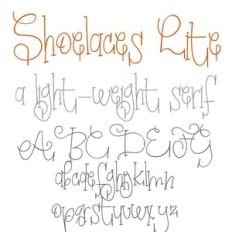 Shoelaces Lite
a light-weight serif
A B C D E F G
abcdefghijklmn
opqrstuvwxyz